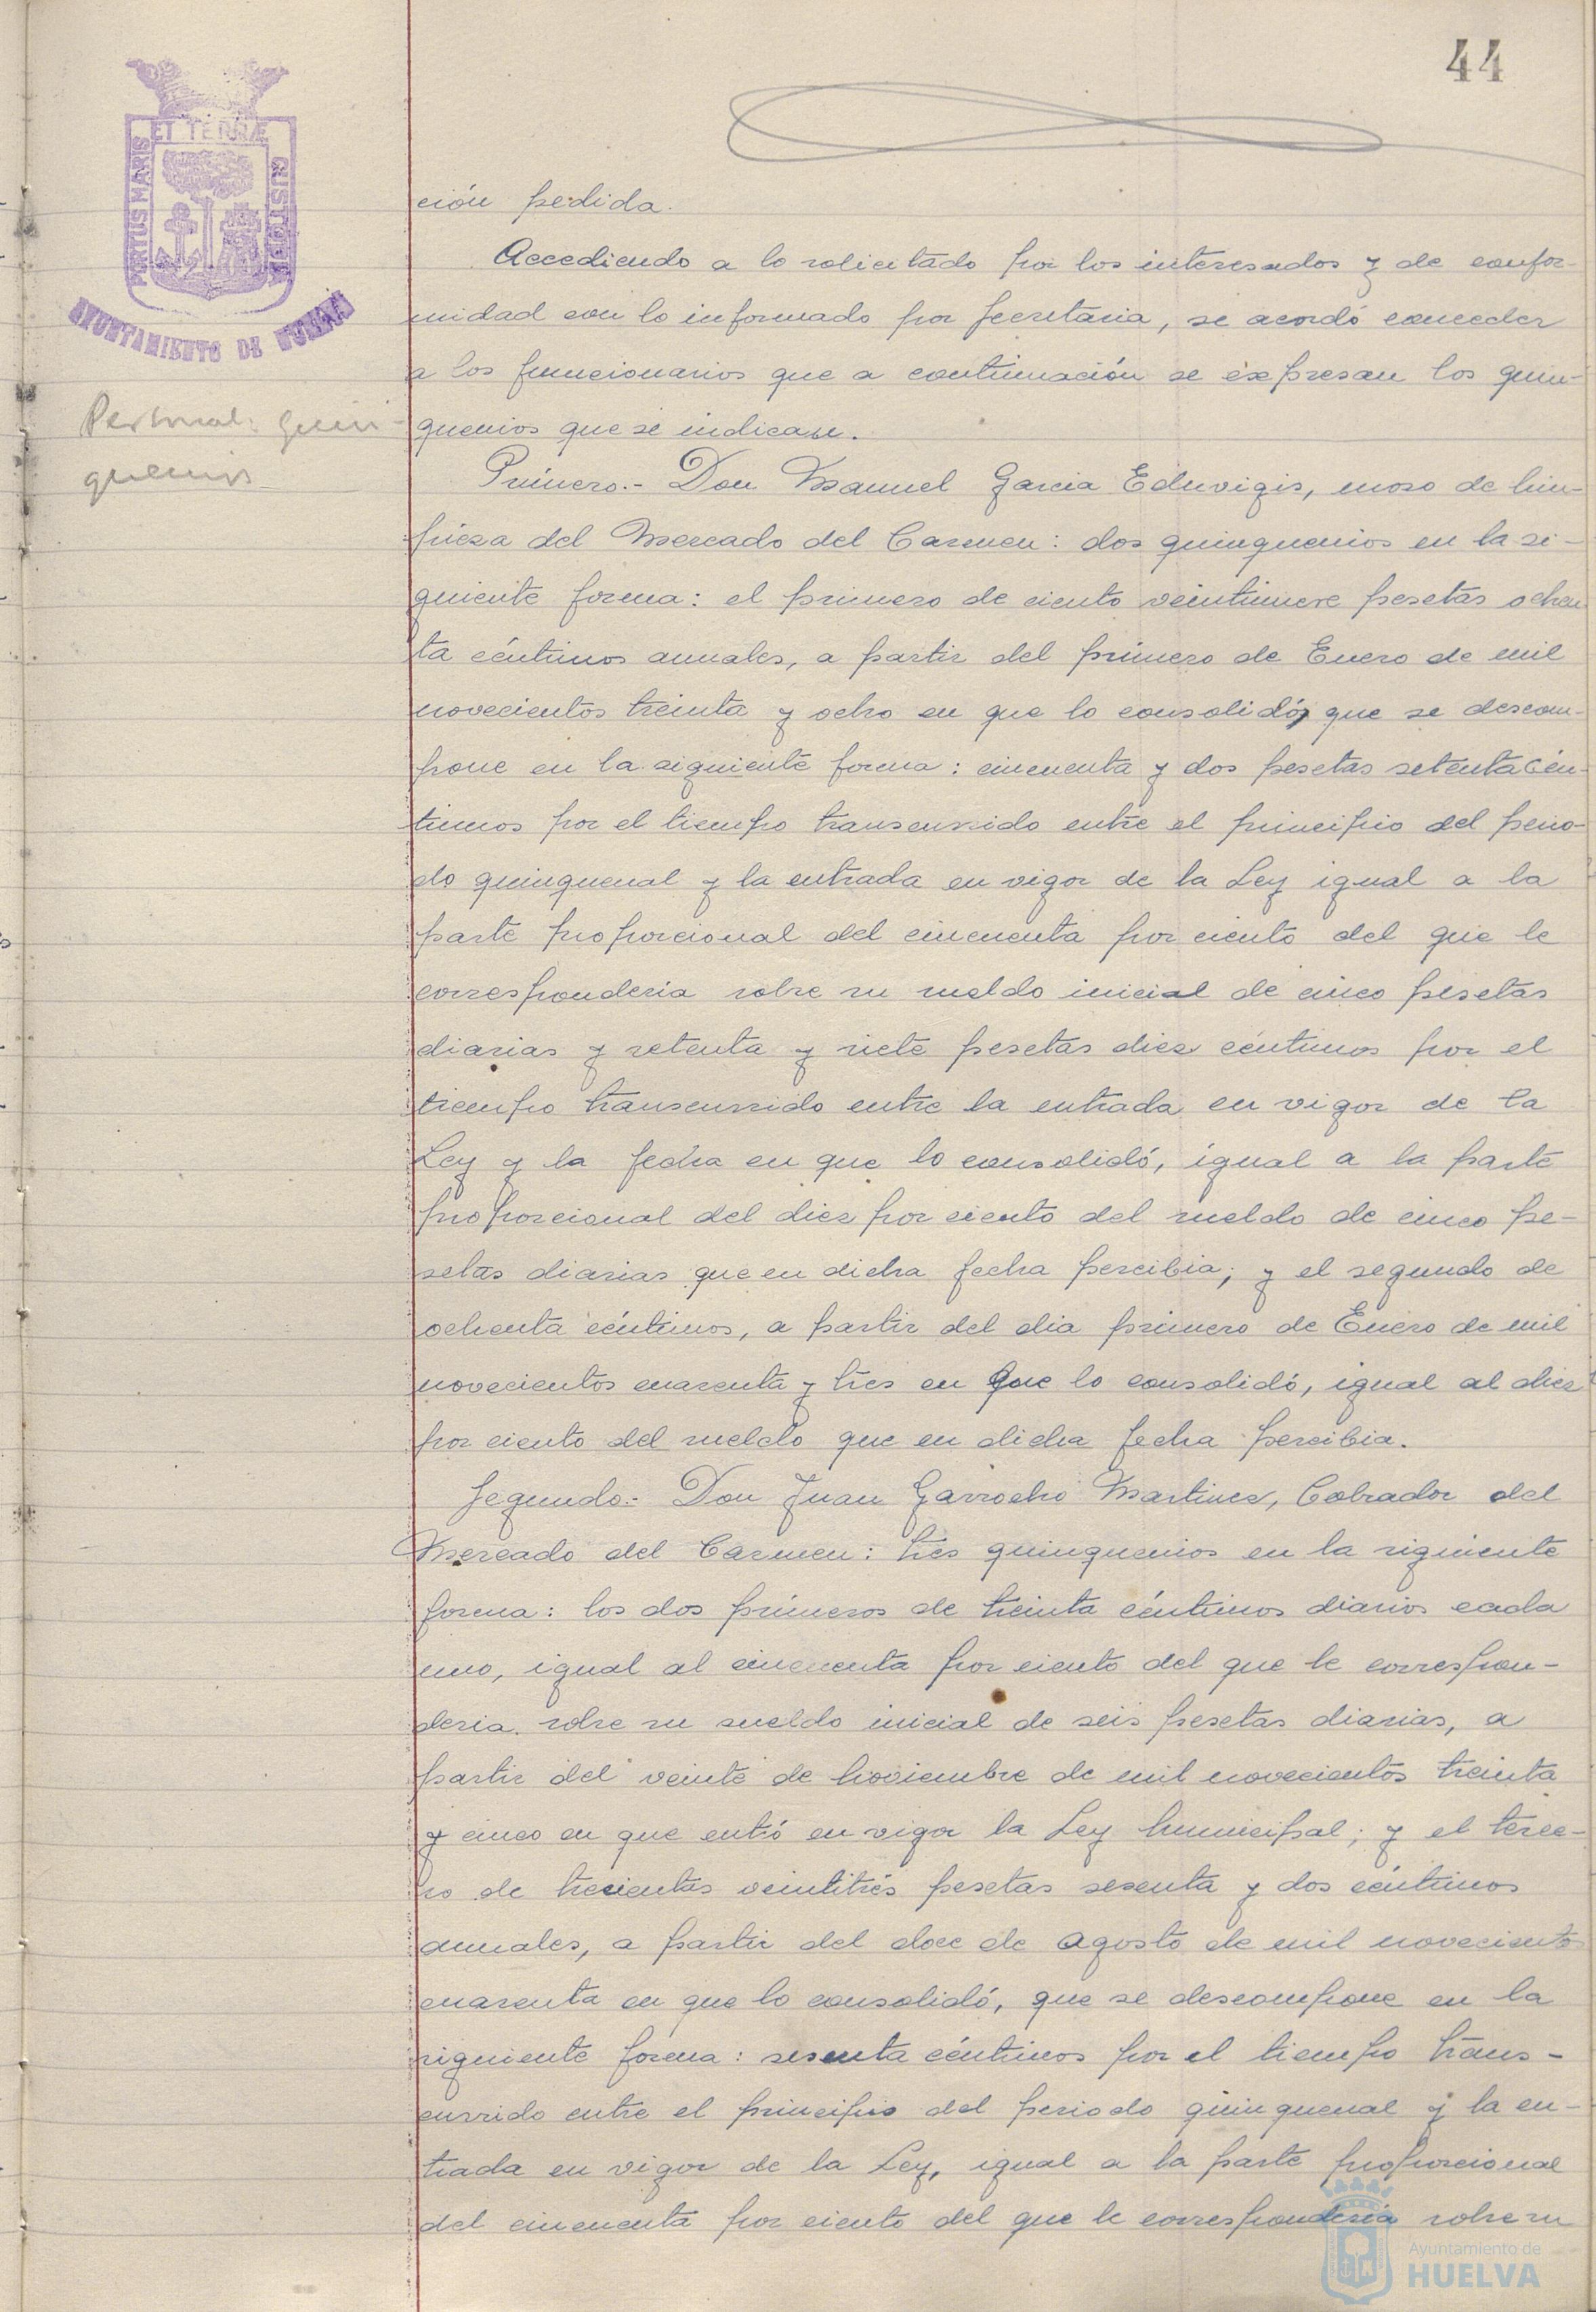 44
PORTUS MARIS
ET TERRÆ
CUSTODIA
AYUNTAMIENTO DE HUELVA
Personal: quin-
quenios
ción pedida.
Accediendo a lo solicitado por los interesados y de confor-
midad con lo informado por Secretaria, se acordó conceder
a los funcionarios que a continuación se expresan los quin-
quenios que se indican.
Primero.- Don Manuel Garcia Eduvigis, moso de lim-
pieza del Mercado del Carmen: dos quinquenios en la si-
guiente forma: el primero de ciento veintinueve pesetas ochen
ta céntimos anuales, a partir del primero de Enero de mil
novecientos treinta y ocho en que lo consolidó, que se descom-
pone en la siguiente forma: cincuenta y dos pesetas setenta cén-
timos por el tiempo transcurrido entre el principio del perio-
do quinquenal y la entrada en vigor de la Ley igual a la
parte proporcional del cincuenta por ciento del que le
corresponderia sobre su sueldo inicial de cinco pesetas
diarias y setenta y siete pesetas diez céntimos por el
tiempo transcurrido entre la entrada en vigor de la
Ley y la fecha en que lo consolidó, igual a la parte
proporcional del diez por ciento del sueldo de cinco pe-
setas diarias que en dicha fecha percibia; y el segundo de
ochenta céntimos, a partir del dia primero de Enero de mil
novecientos cuarenta y tres en que lo consolidó, igual al diez
por ciento del sueldo que en dicha fecha percibia.
Segundo.- Don Juan Garrocho Martinez, Cobrador del
Mercado del Carmen: tres quinquenios en la siguiente
forma: los dos primeros de treinta céntimos diarios cada
uno, igual al cincuenta por ciento del que le correspon-
deria sobre su sueldo inicial de seis pesetas diarias, a
partir del veinte de Noviembre de mil novecientos treinta
y cinco en que entró en vigor la Ley Municipal; y el terce-
ro de trecientas veintitrés pesetas sesenta y dos céntimos
anuales, a partir del doce de Agosto de mil novecientos
cuarenta en que lo consolidó, que se descompone en la
siguiente forma: sesenta céntimos por el tiempo trans-
currido entre el principio del periodo quinquenal y la en-
trada en vigor de la Ley, igual a la parte proporcional
del cincuenta por ciento del que le corresponderia sobre su
Ayuntamiento de
HUELVA